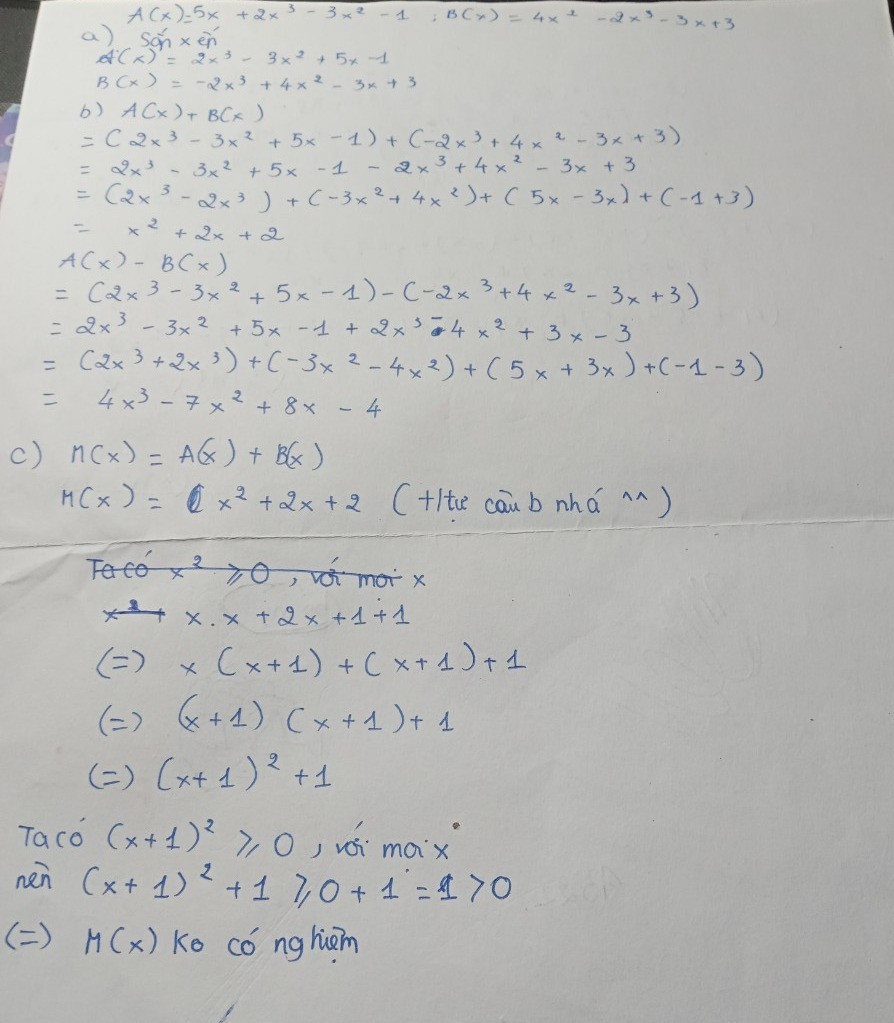 A(x)=5x + 2x³ - 3x² - 1 ; B(x) = 4x² - 2x³ - 3x + 3
a) Sắp xếp
A(x) = 2x³ - 3x² + 5x - 1
B(x) = -2x³ + 4x² - 3x + 3
b) A(x) + B(x)
= (2x³ - 3x² + 5x - 1) + (-2x³ + 4x² - 3x + 3)
= 2x³ - 3x² + 5x - 1 - 2x³ + 4x² - 3x + 3
= (2x³ - 2x³) + (-3x² + 4x²) + (5x - 3x) + (-1 + 3)
= x² + 2x + 2
A(x) - B(x)
= (2x³ - 3x² + 5x - 1) - (-2x³ + 4x² - 3x + 3)
= 2x³ - 3x² + 5x - 1 + 2x³ - 4x² + 3x - 3
= (2x³ + 2x³) + (-3x² - 4x²) + (5x + 3x) + (-1 - 3)
= 4x³ - 7x² + 8x - 4
c) M(x) = A(x) + B(x)
M(x) = x² + 2x + 2 ( +/tự câu b nhá ^^ )
Ta có x² ⩾ 0 , với mọi x
x² + x.x + 2x + 1 + 1
(=) x (x + 1) + (x + 1) + 1
(=) (x + 1) (x + 1) + 1
(=) (x + 1)² + 1
Ta có (x + 1)² ⩾ 0 , với mọi x
nên (x + 1)² + 1 ⩾ 0 + 1 = 1 > 0
(=) M(x) ko có nghiệm